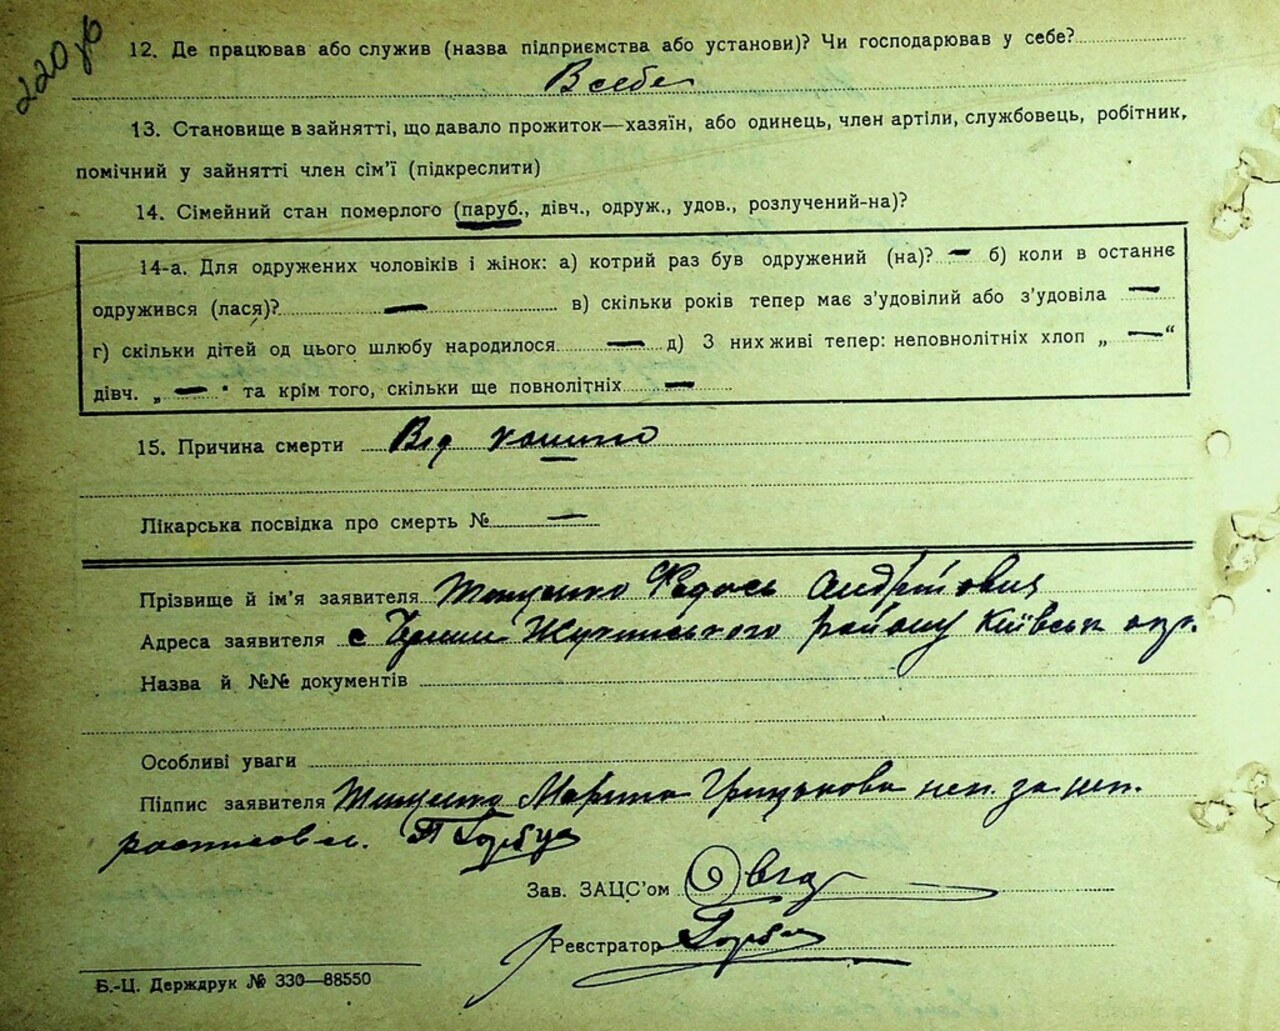 220 зв
12. Де працював або служив (назва підприємства або установи)? Чи господарював у себе?
В себе
13. Становище в зайнятті, що давало прожиток—хазяїн, або одинець, член артіли, службовець, робітник,
помічний у зайнятті член сім'ї (підкреслити)
14. Сімейний стан померлого (паруб., дівч., одруж., удов., розлучений-на)?
14-а. Для одружених чоловіків і жінок: а) котрий раз був одружений (на)? — б) коли в останнє
одружився (лася)? — в) скільки років тепер має з'удовілий або з'удовіла —
г) скільки дітей од цього шлюбу народилося — д) З них живі тепер: неповнолітніх хлоп „ — “
дівч. „ — " та крім того, скільки ще повнолітніх —
15. Причина смерти Від
Лікарська посвідка про смерть № —
Прізвище й ім'я заявителя Тищенко Федось Андрійович
Адреса заявителя с район Київськ окр.
Назва й №№ документів
Особливі уваги
Підпис заявителя Тищенко Марина неп. за неп.
Горбу
Зав. ЗАЦС'ом
Реєстратор Горбу
Б.-Ц. Держдрук № 330—88550